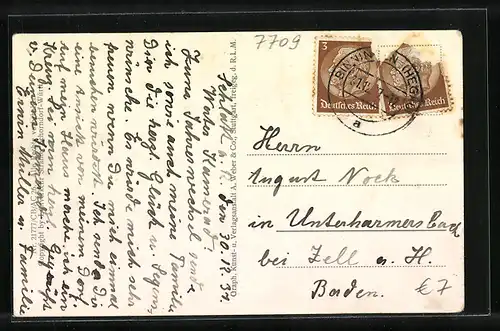 7709
3
Deutsches Reich
Deutsches Reich
BINNIN
a
Herrn
August Nock
in Unterharmersbach
bei Zell a. H.
Baden.
€7
den 30.12.37
Werter Kamerad!
Zum Jahreswechsel sende
ich sowie auch meine Familie
Dir die herzl. Glück u. Segens
wünsche. Es würde mich sehr
freuen wenn Du mich einmal
besuchen würdest. Ich sende Dir
eine Ansicht von meinem Dorf.
Auf mein Haus mache ich ein
Kreuz. Sei nun herzl. gegrüßt
v. Deinem Kamerad
Erwin Müller u. Familie
Graph. Kunst- u. Verlagsanstalt A. Weber & Co., Stuttgart. Freigeg. d. R.L.M.